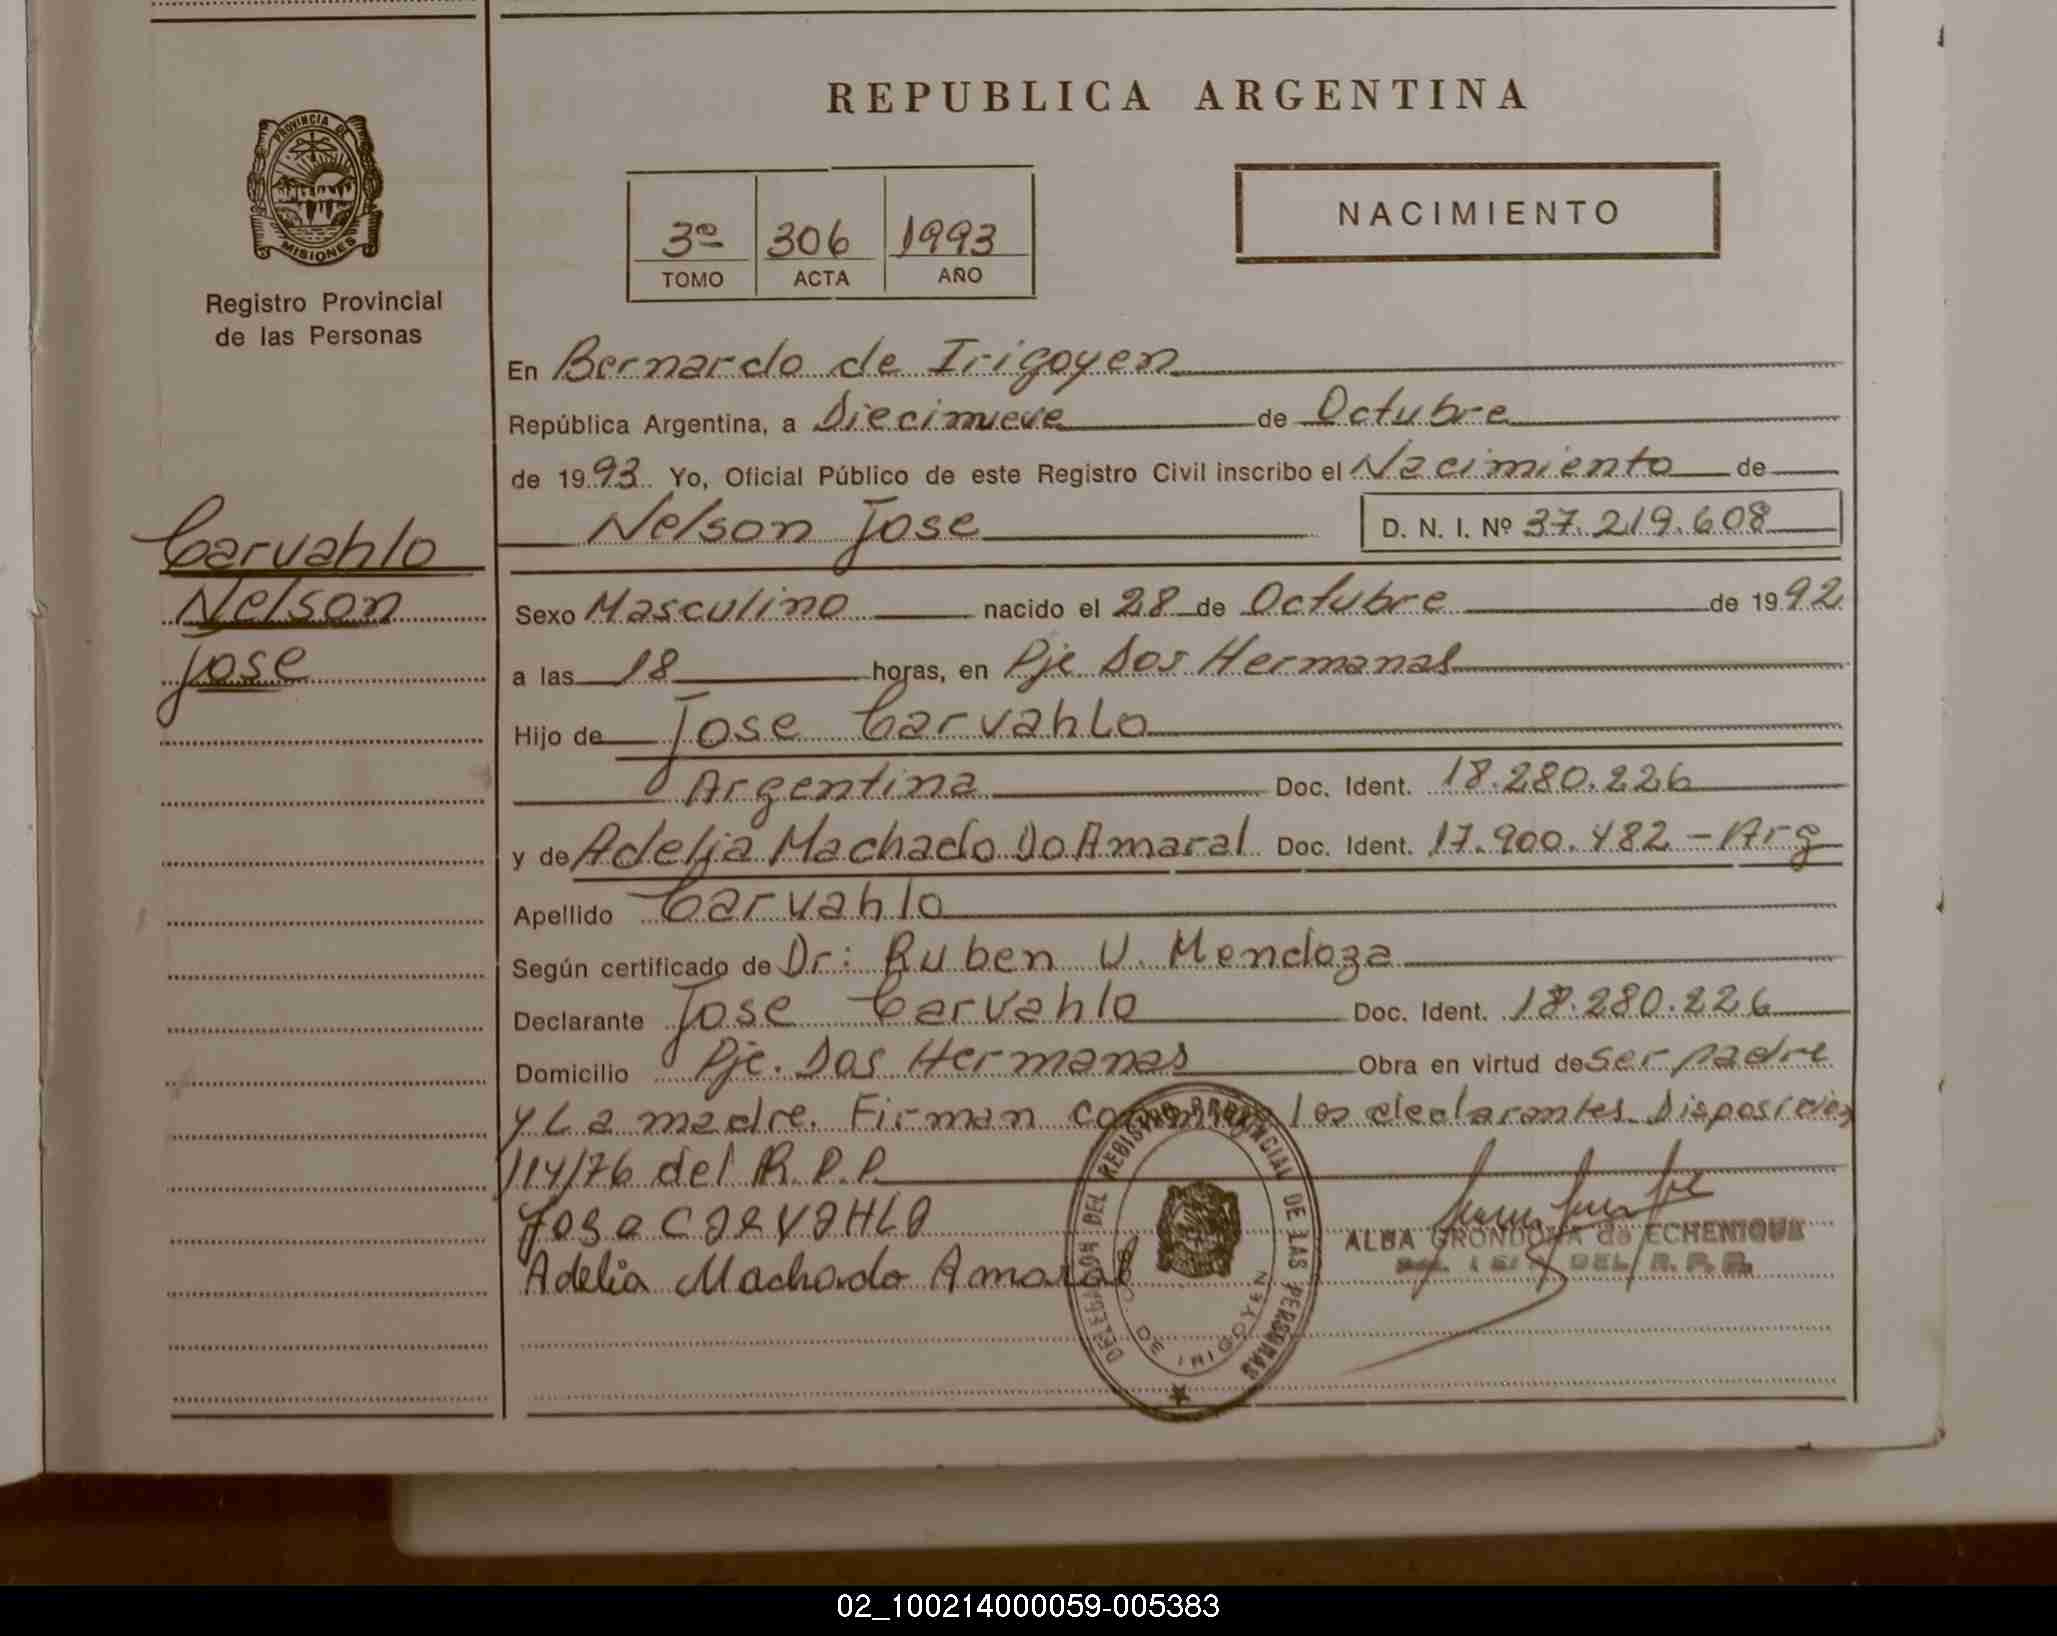 REPUBLICA ARGENTINA
PROVINCIA DE
MISIONES
Registro Provincial
de las Personas
3º 306 1993
TOMO ACTA AÑO
NACIMIENTO
En Bernardo de Irigoyen
República Argentina, a Diecinueve de Octubre
de 1993 Yo, Oficial Público de este Registro Civil inscribo el Nacimiento de
Nelson Jose D. N. I. Nº 37.219.608
Carvahlo
Nelson
Jose
Sexo Masculino nacido el 28 de Octubre de 1992
a las 18 horas, en Pje Dos Hermanas
Hijo de Jose Carvahlo
Argentina Doc. Ident. 18.280.226
y de Adelia Machado Do Amaral Doc. Ident. 17.900.482 - Arg
Apellido Carvahlo
Según certificado de Dr: Ruben U. Mendoza
Declarante Jose Carvahlo Doc. Ident. 18.280.226
Domicilio Pje. Dos Hermanas Obra en virtud de ser padre
y La madre. Firman conmigo los declarantes. Disposicion
114/76 del R.P.P.
Jose CARVAHLO
Adelia Machado Amaral
DELEGACION DEL REGISTRO PROVINCIAL DE LAS PERSONAS
DE IRIGOYEN
ALBA GRONDONA de ECHENIQUE
DEL R.P.P.
02_100214000059-005383